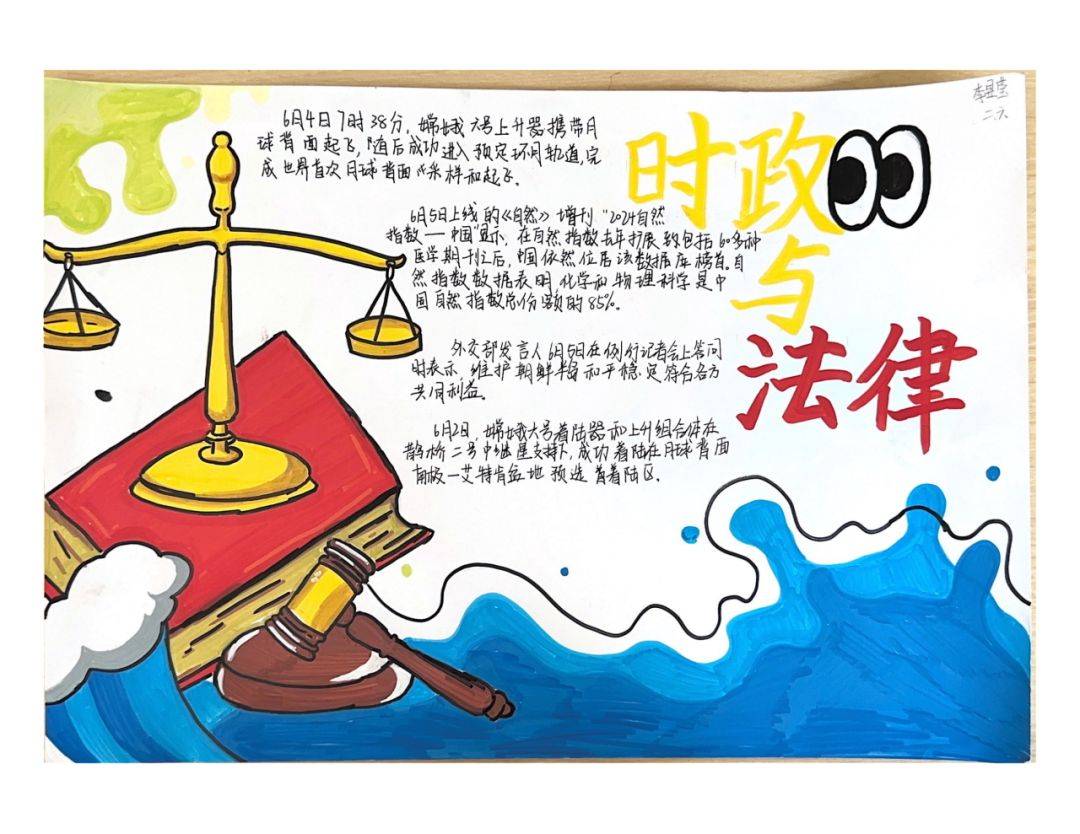 时政
与
法律
二六
6月4日7时38分，嫦娥六号上升器携带月
球背面起飞，随后成功进入预定环月轨道，完
成世界首次月球背面采样和起飞。
6月5日上线的《自然》增刊“2024自然
指数——中国”显示，在自然指数去年扩展到包括60多种
医学期刊之后，中国依然位居该数据库榜首。自
然指数数据表明，化学和物理科学是中
国自然指数总份额的85%。
外交部发言人6月5日在例行记者会上答问
时表示，维护朝鲜半岛和平稳定符合各方
共同利益。
6月2日，嫦娥六号着陆器和上升组合体在
鹊桥二号中继星支持下，成功着陆在月球背面
南极—艾特肯盆地预选着着陆区.